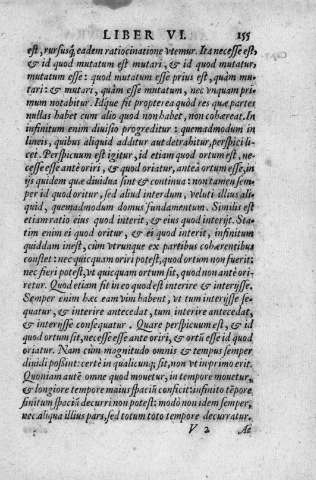 LIBER VI. 155
est, rursusq́; eadem ratiocinatione vtemur. Ita necesse est,
& id quod mutatum est mutari, & id quod mutatur,
mutatum esse: quod mutatum esse prius est, quàm mu-
tari: & mutari, quàm esse mutatum, nec vnquam pri-
mum notabitur. Idque fit propterea quòd res quæ partes
nullas habet cum alio quod non habet, non cohæreat. In
infinitum enim diuisio progreditur: quemadmodum in
lineis, quibus aliquid additur aut detrahitur, perspici li-
cet. Perspicuum est igitur, id etiam quod ortum est, ne-
cesse esse antè oriri, & quod oriatur, anteà ortum esse, in
ijs quidem quæ diuidua sint & continua: non tamen sem-
per id quod oritur, sed aliud interdum, veluti illius ali-
quid, quemadmodum domus fundamentum. Similis est
etiam ratio eius quod interit, & eius quod interijt. Sta-
tim enim ei quod oritur, & ei quod interit, infinitum
quiddam inest, cùm vtrunque ex partibus cohærentibus
constet: nec quicquam oriri potest, quod ortum non fuerit:
nec fieri potest, vt quicquam ortum sit, quod non antè ori-
retur. Quod etiam fit in eo quod est interire & interijsse.
Semper enim hæc eam vim habent, vt tum interijsse se-
quatur, & interire antecedat, tum interire antecedat,
& interijsse consequatur. Quare perspicuum est, & id
quod ortum sit, necesse esse ante oriri, & ortū esse id quod
oriatur. Nam cùm magnitudo omnis & tempus semper
diuidi possint: certè in qualicunq; sit, non vt in primo erit.
Quoniam autē omne quod mouetur, in tempore mouetur,
& longiore tempore maius spaciū conficit: infinito tēpore
finitum spaciū decurri non potest: modò non idem semper,
nec aliqua illius pars, sed totum toto tempore decurratur.
V 2 Ac